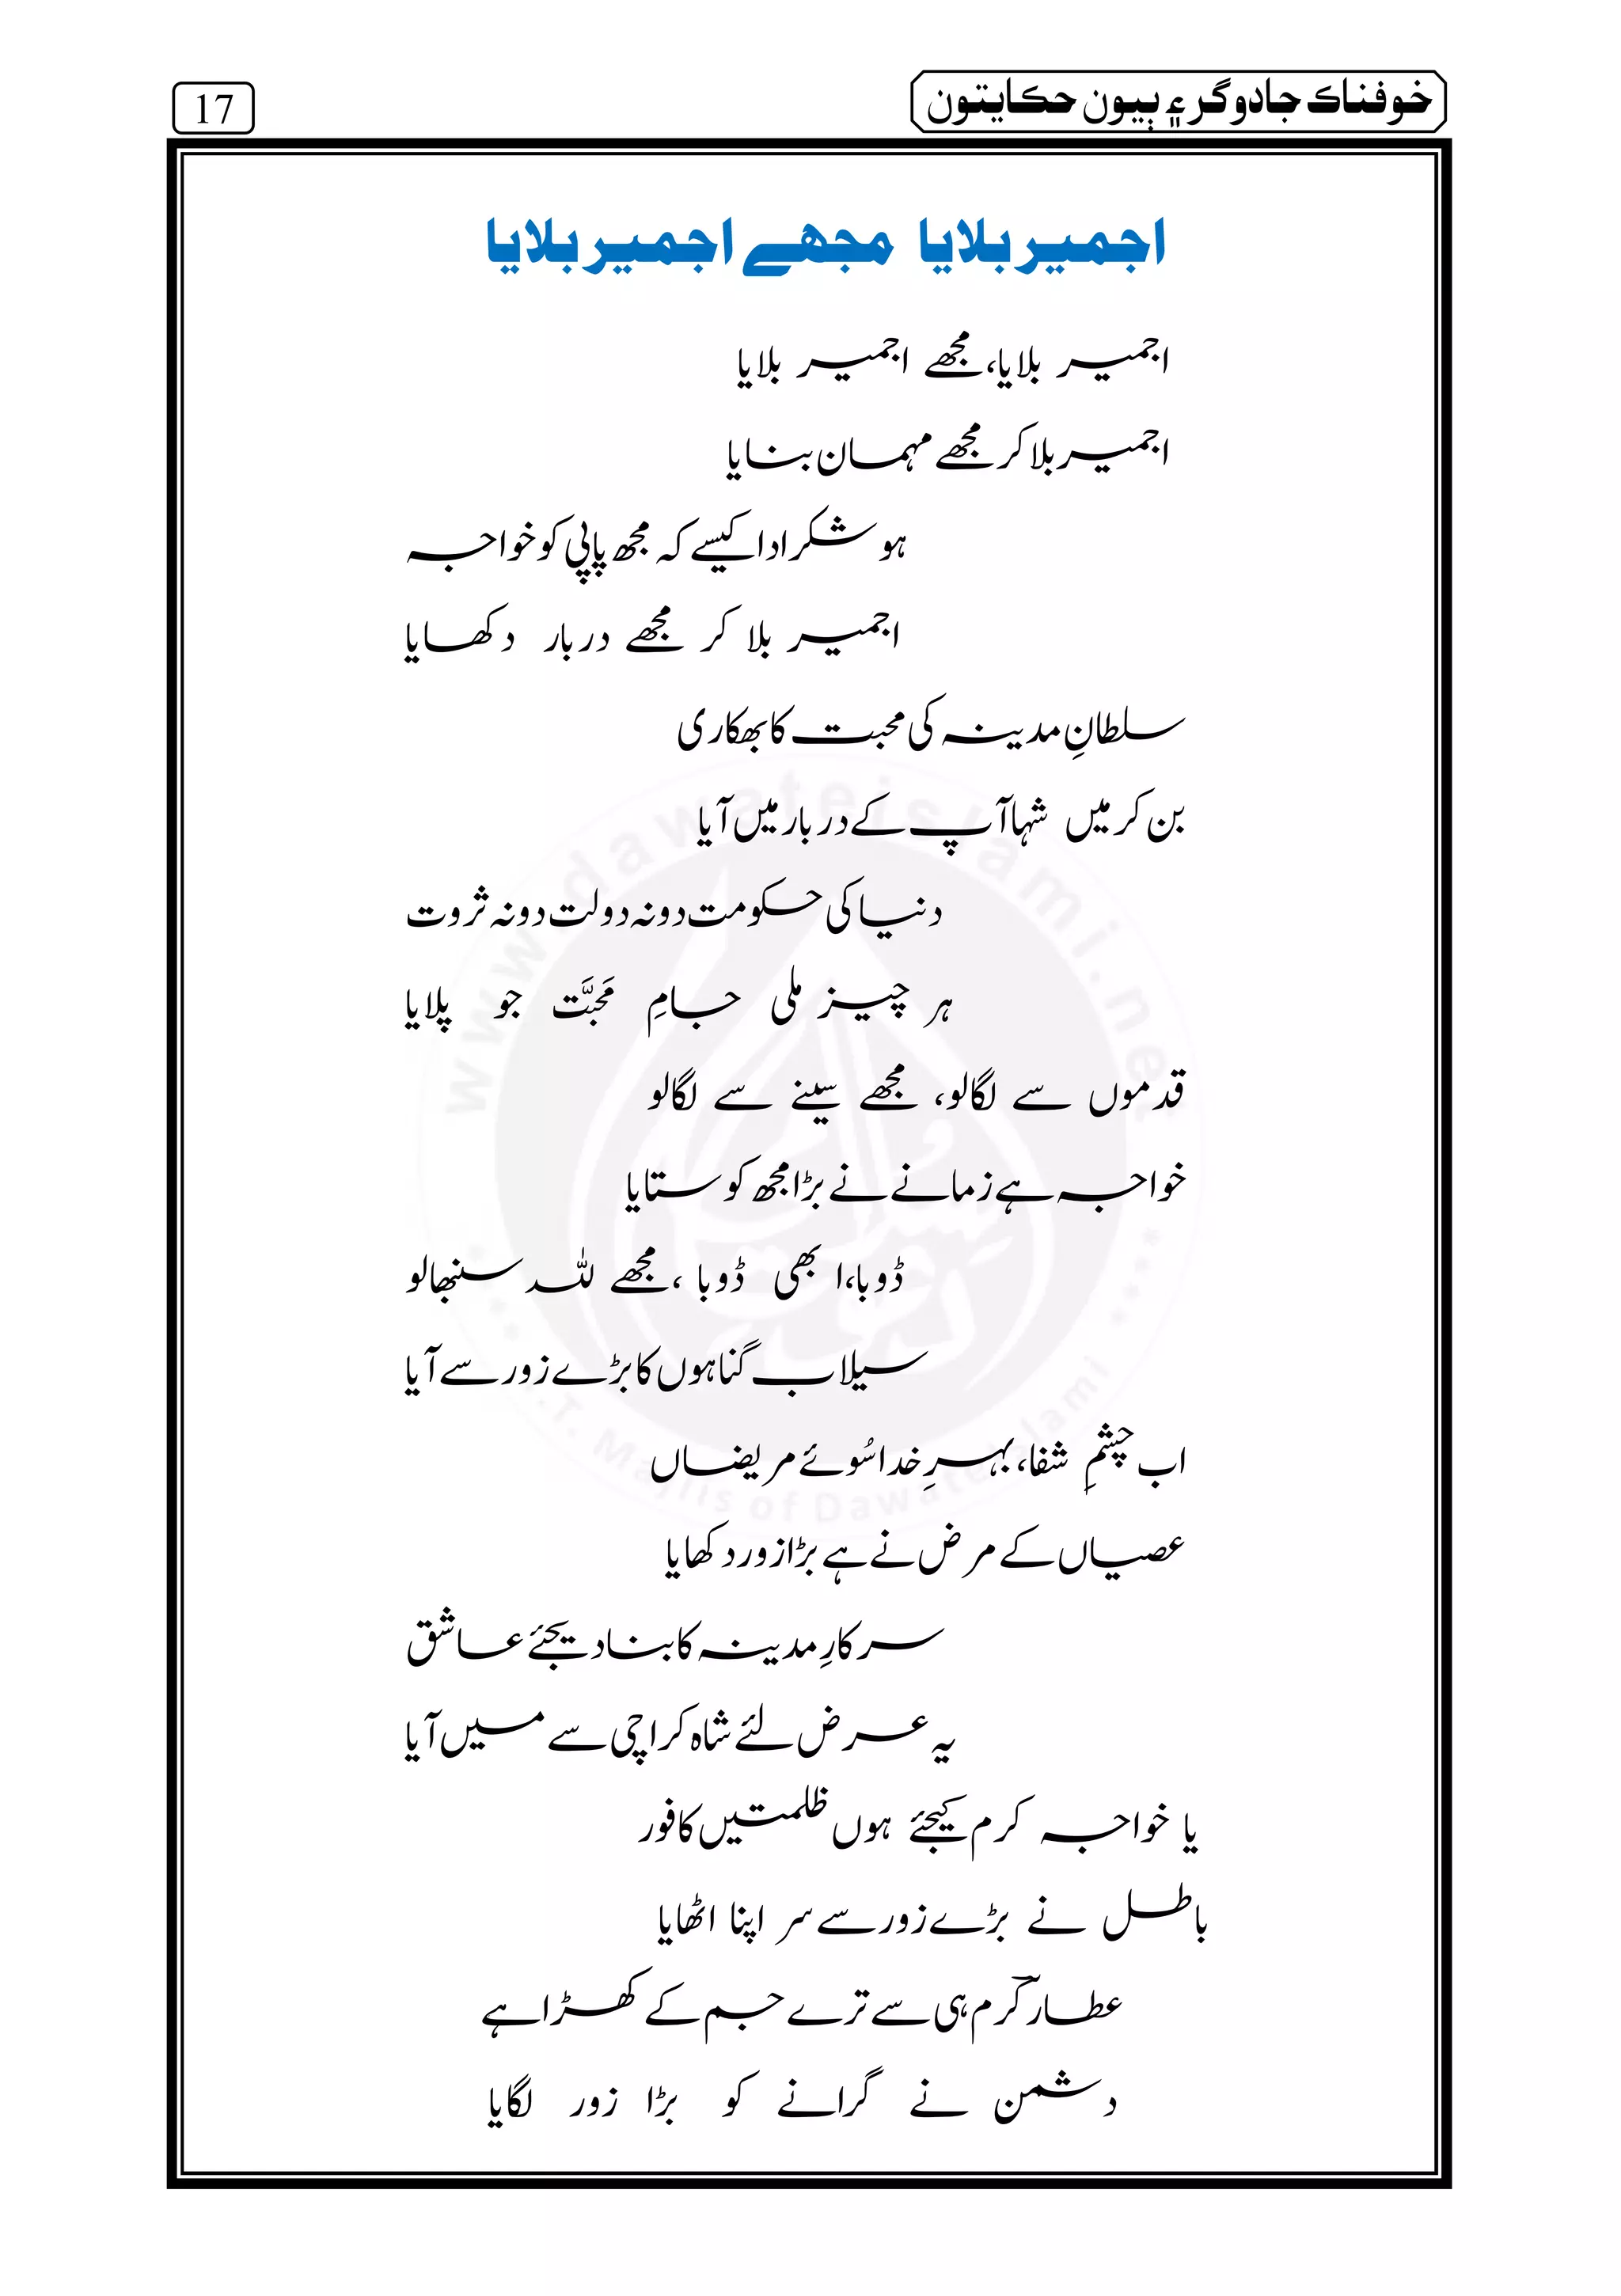 خوفناڪ جادوگر ۽ ٻيون حڪايتون
17
اجمیر بلایا مجھے اجمیر بلایا
اجمیر بلایا، مجھے اجمیر بلایا
اجمیر بلا کر مجھے مہمان بنایا
ہو شکر ادا کیسے کہ مجھ پاپی کو خواجہ
اجمیر بلا کر مجھے دربار دکھایا
سلطانِ مدینہ کی محبت کا بھکاری
بن کر میں شہا آپ کے دربار میں آیا
دنیا کی حکومت دو نہ دولت دو نہ ثروت
ہر چیز ملی جامِ مَحَبَّت جو پلایا
قدموں سے لگا لو، مجھے سینے سے لگا لو
خواجہ ہے زمانے نے بڑا مجھ کو ستایا
ڈوبا، ابھی ڈوبا، مجھے للہ سنبھالو
سیلاب گناہوں کا بڑے زور سے آیا
اب چشمِ شفا، بہرِ خدا سُوئے مریضاں
عصیاں کے مرض نے ہے بڑا زور دکھایا
سرکارِ مدینہ کا بنا دیجئے عاشق
یہ عرض لئے شاہ کراچی سے میں آیا
یا خواجہ کرم کیجئے ہوں ظلمتیں کافور
باطل نے بڑے زور سے سر اپنا اٹھایا
عطارؔ کرم ہی سے ترے جم کے کھڑا ہے
دشمن نے گرانے کو بڑا زور لگایا
www.dawateislami.net
I.T. Majlis of DawateIslami